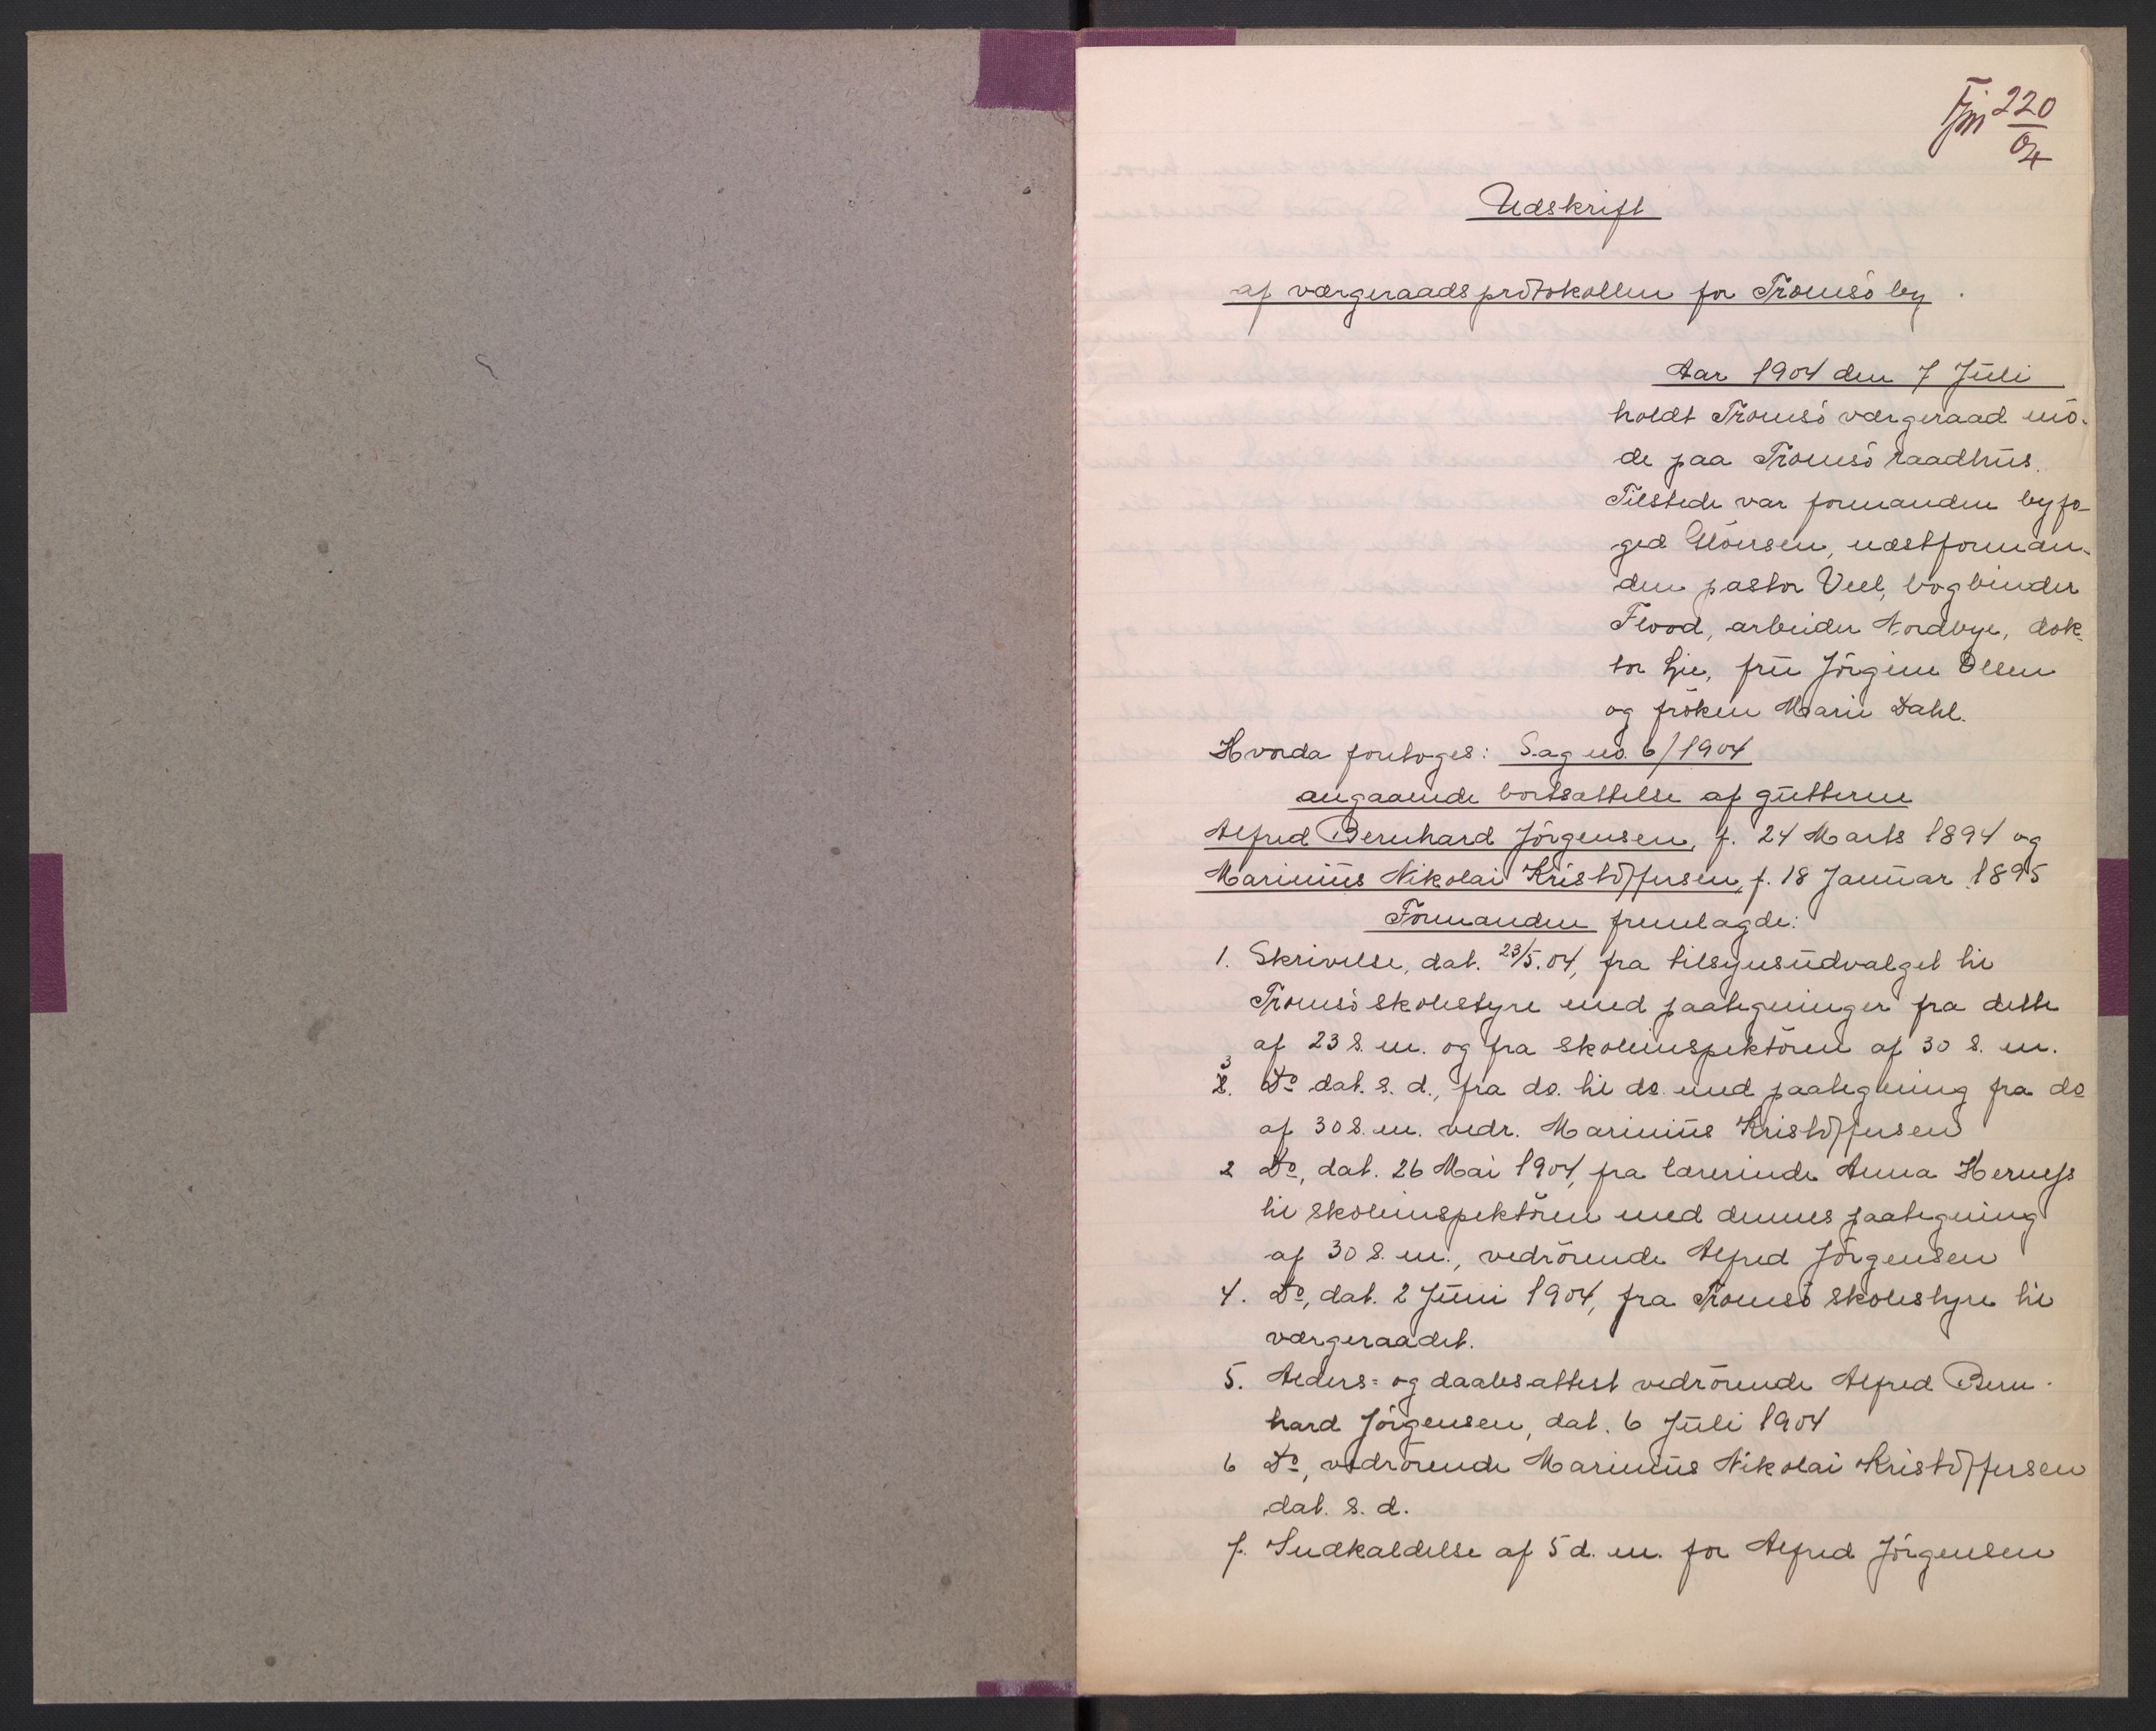 220
04
Udskrift
af værgeraadsprotokollen for Tromsö by.
Aar 1904 den 7 Juli
holdt Tromsö værgeraad mö-
de paa Tromsö raadhus.
Tilstede var formanden byfo-
ged næstforman-
den pastor bogbinder
Flood, arbeider Nordbye, dok-
tor Lie, fru Jörgine Olsen
og fröken Marie Dahl.
Hvorda foretoges: Sag no. 6/1904
angaaende bortsættelse af gutterne
Alfred Bernhard Jörgensen, f. 24 Marts 1894 og
Marinius Nikolai Kristoffersen, f. 18 Januar 1895
Formanden fremlagde:
1. Skrivelse, dat. 23/5.04, fra tilsynsudvalget til
Tromsö skolestyre med paategninger fra dette
af 23 s. m. og fra skoleinspektören af 30 s. m.
3
2. Do dat. s. d., fra do. til do. med paategning fra do
af 30 s. m. vedr. Marinius Kristoffersen
2 Do, dat. 26 Mai 1904, fra lærerinde Anna Herness
til skoleinspektören med dennes paategning
af 30 s. m., vedrörende Alfred Jörgensen
4. Do, dat. 2 Juni 1904, fra Tromsö skolestyre til
værgeraadet.
5. Alders- og daabsattest vedrörende Alfred Bern-
hard Jörgensen, dat. 6 Juli 1904
6 Do, vedrörende Marinius Nikolai Kristoffersen
dat. s. d.
7. Indkaldelse af 5 d. m. for Alfred Jörgensen